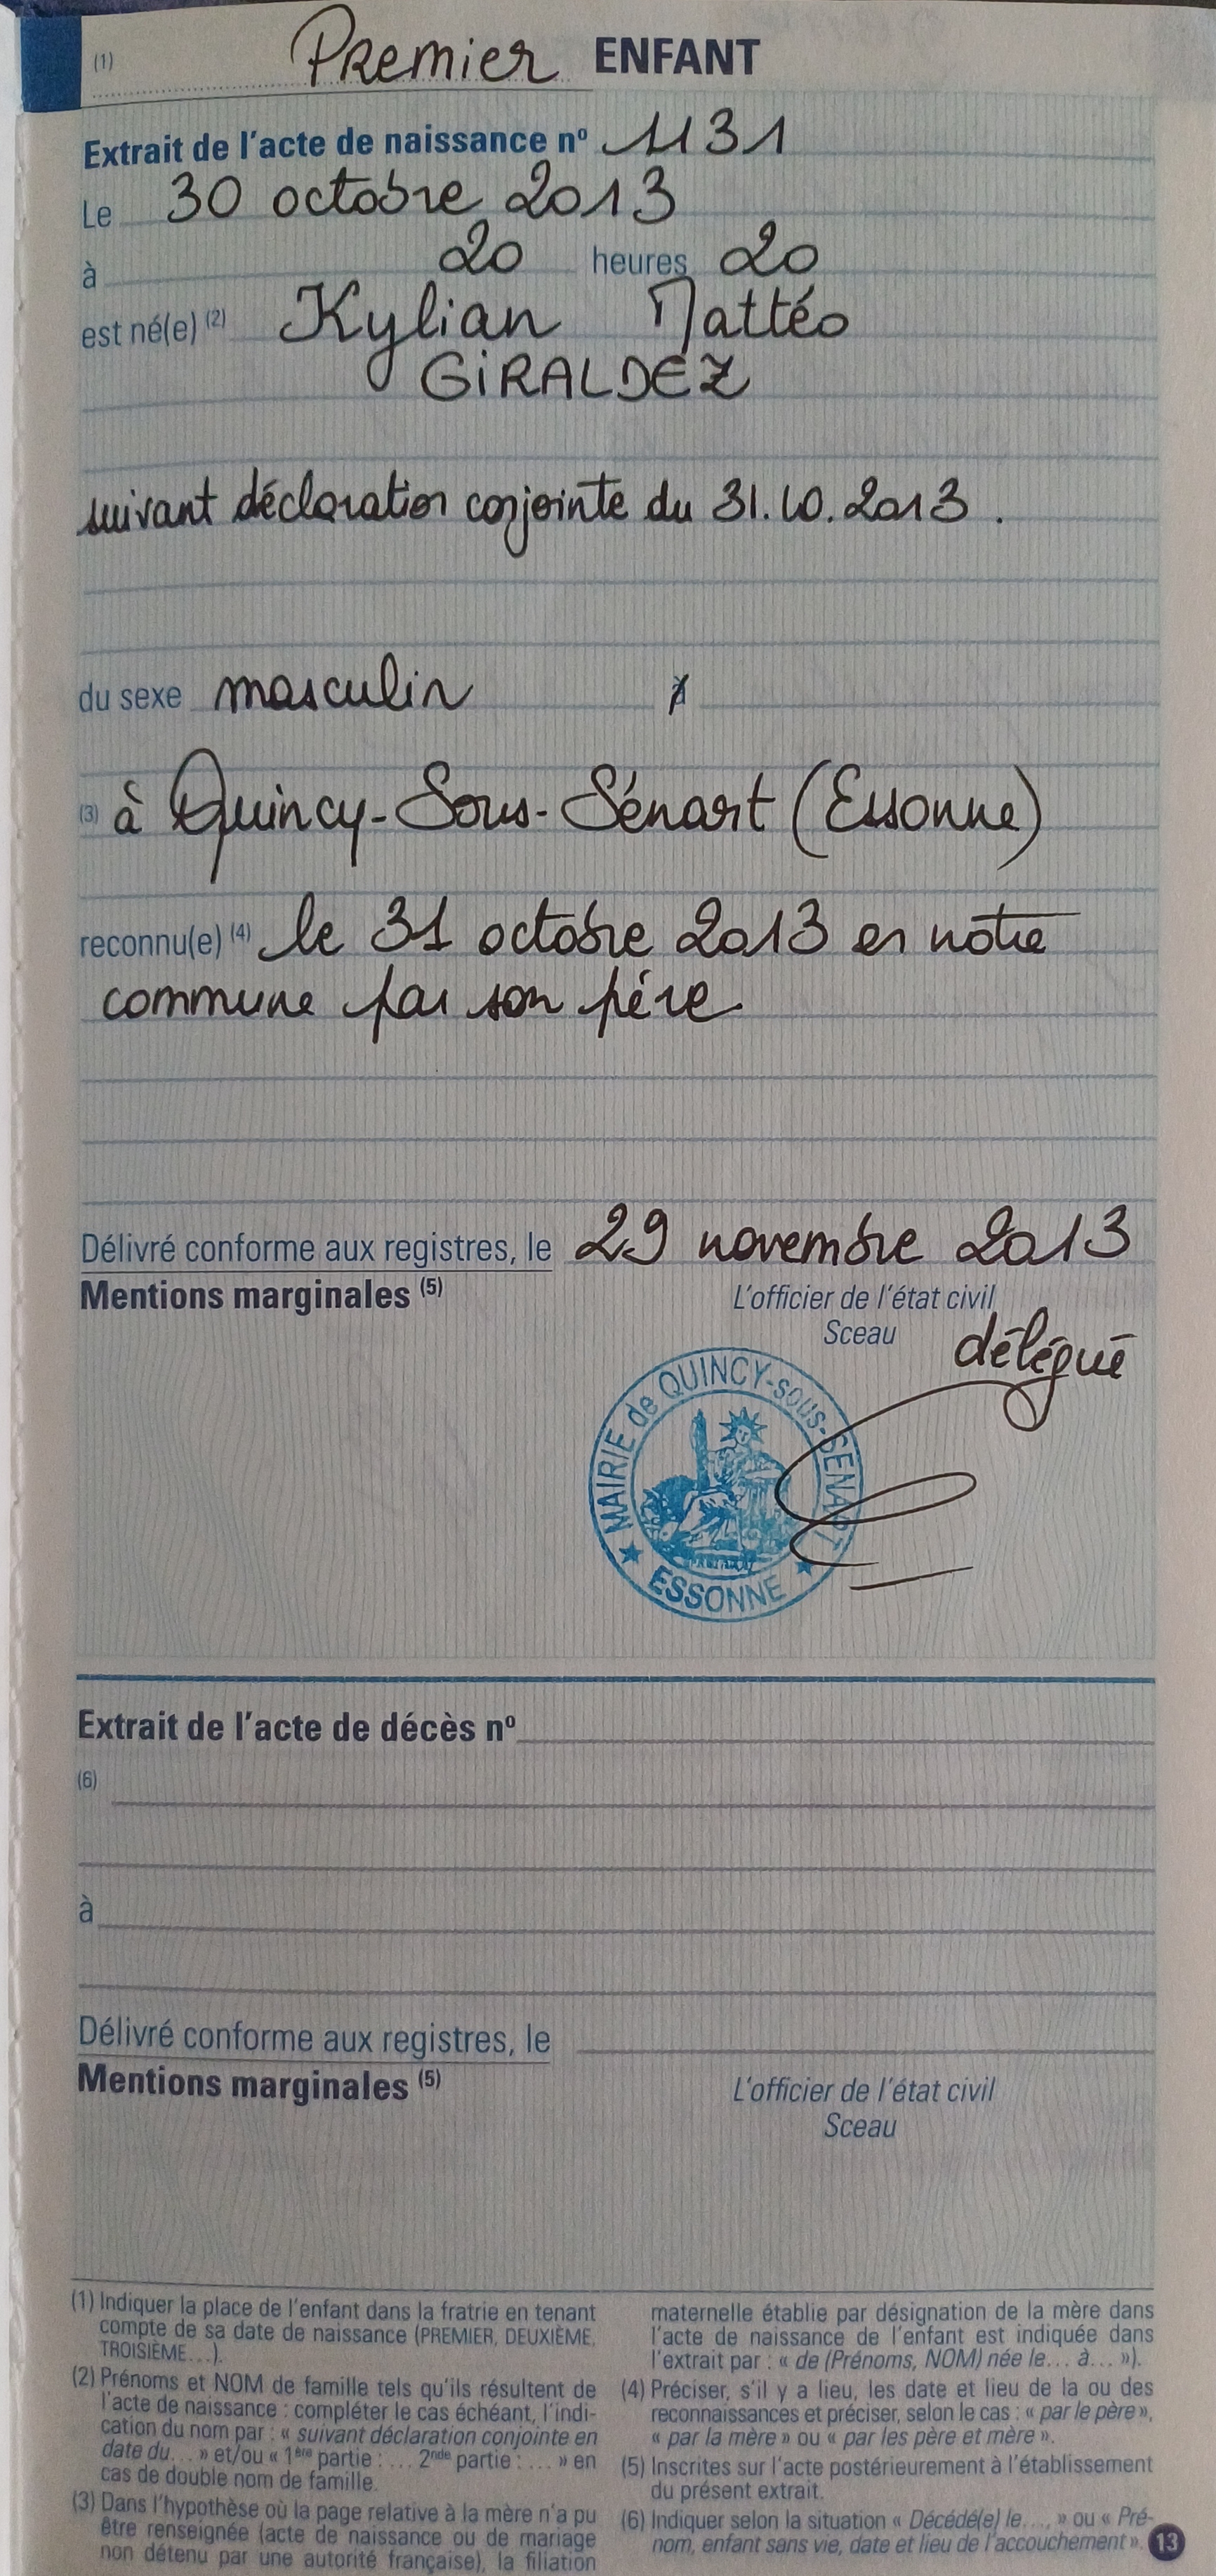 (1) Premier ENFANT
Extrait de l'acte de naissance nº 1131
Le 30 octobre 2013
à 20 heures 20
est né(e) (2) Kylian Mattéo
GIRALDEZ
suivant déclaration conjointe du 31.10.2013.
du sexe masculin à
(3) à Quincy-Sous-Sénart (Essonne)
reconnu(e) (4) le 31 octobre 2013 en notre
commune par son père
Délivré conforme aux registres, le 29 novembre 2013
Mentions marginales (5) L'officier de l'état civil
Sceau délégué
MAIRIE de QUINCY-sous-SENART
ESSONNE
Extrait de l'acte de décès nº
(6)
à
Délivré conforme aux registres, le
Mentions marginales (5) L'officier de l'état civil
Sceau
(1) Indiquer la place de l'enfant dans la fratrie en tenant
compte de sa date de naissance (PREMIER, DEUXIÈME,
TROISIÈME...).
(2) Prénoms et NOM de famille tels qu'ils résultent de
l'acte de naissance : compléter le cas échéant, l'indi-
cation du nom par : « suivant déclaration conjointe en
date du... » et/ou « 1ère partie : ... 2nde partie : ... » en
cas de double nom de famille.
(3) Dans l'hypothèse où la page relative à la mère n'a pu
être renseignée (acte de naissance ou de mariage
non détenu par une autorité française), la filiation
maternelle établie par désignation de la mère dans
l'acte de naissance de l'enfant est indiquée dans
l'extrait par : « de (Prénoms, NOM) née le... à... »).
(4) Préciser, s'il y a lieu, les date et lieu de la ou des
reconnaissances et préciser, selon le cas : « par le père »,
« par la mère » ou « par les père et mère ».
(5) Inscrites sur l'acte postérieurement à l'établissement
du présent extrait.
(6) Indiquer selon la situation « Décédé(e) le..., » ou « Pré-
nom, enfant sans vie, date et lieu de l'accouchement ».
13